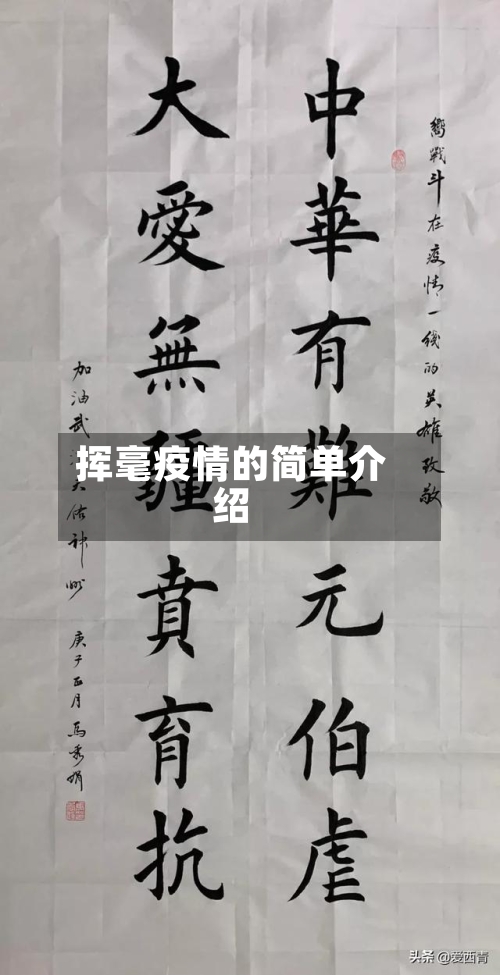 嚮戰斗在疫情一綫的英雄致敬
中華有難元伯虐
大愛無疆賁育抗
加油武天佑神州 庚子正月馬秀娟
挥毫疫情的简单介
绍
头条 @爱西青